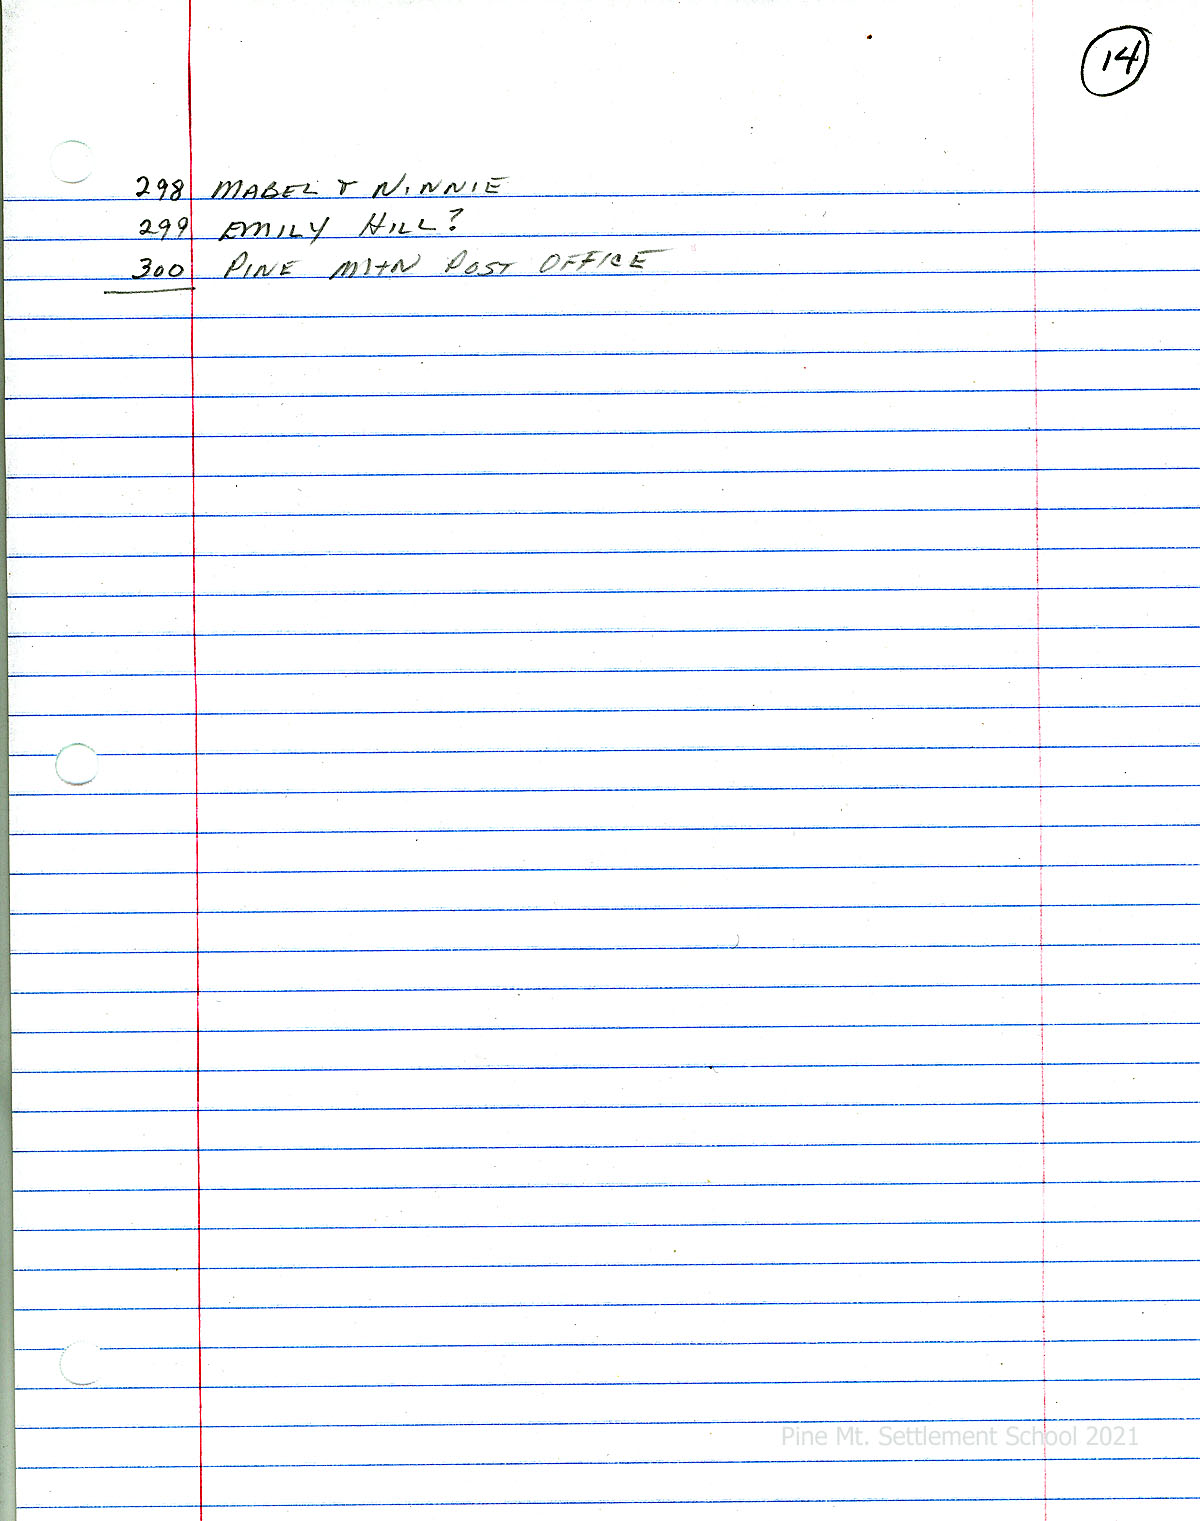 14
298 MABEL & NINNIE
299 EMILY HILL?
300 PINE MTN POST OFFICE
Pine Mt. Settlement School 2021